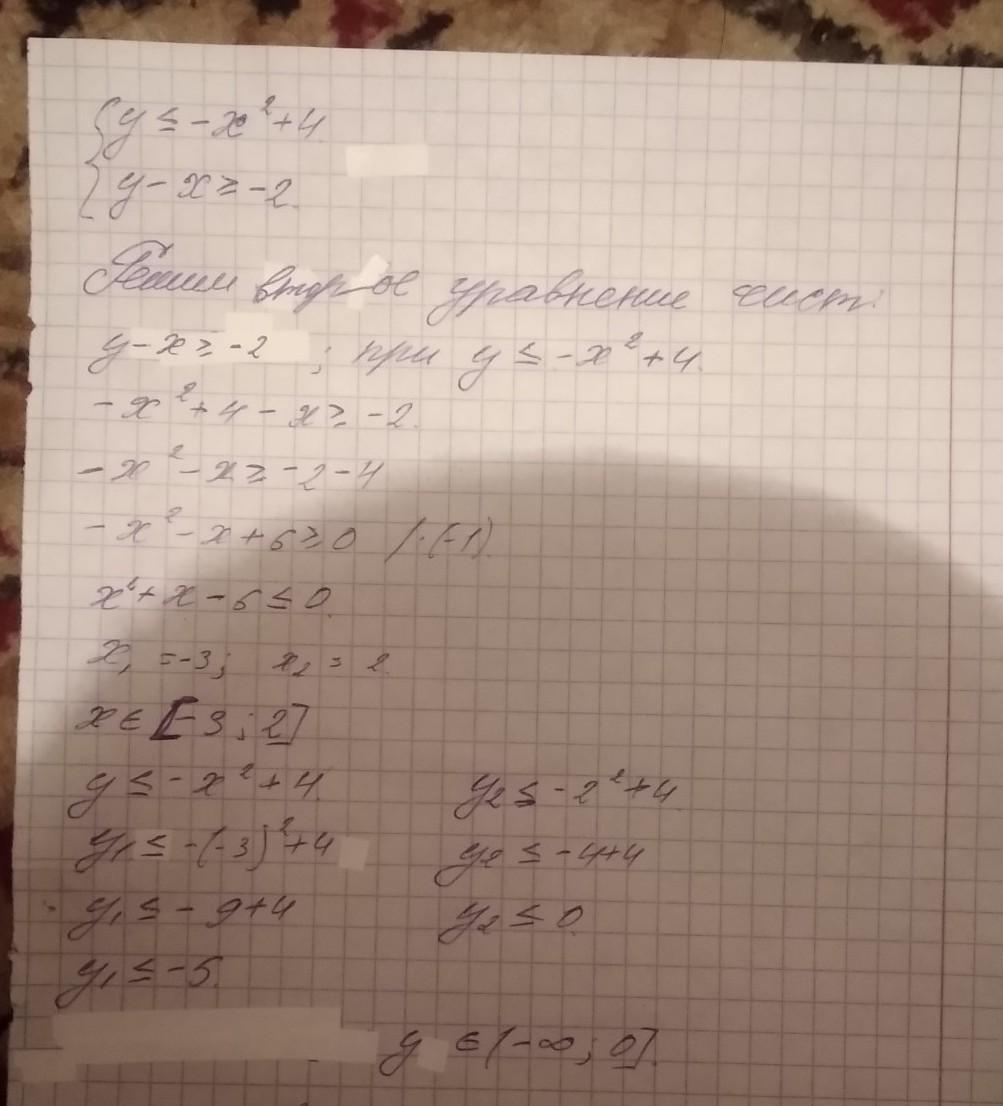 { y ≤ -x²+4.
{ y - x ≥ -2.
Решим второе уравнение сист:
y-x ≥ -2 ; при y ≤ -x²+4.
-x²+4-x ≥ -2.
-x²-x ≥ -2-4
-x²-x+6 ≥ 0 /·(-1).
x²+x-6 ≤ 0.
x₁ =-3; x₂ = 2.
x ∈ [-3 ; 2]
y ≤ -x²+4. y₂ ≤ -2²+4
y₁ ≤ -(-3)²+4 y₂ ≤ -4+4
y₁ ≤ -9+4 y₂ ≤ 0.
y₁ ≤ -5.
y ∈ (-∞; 0].